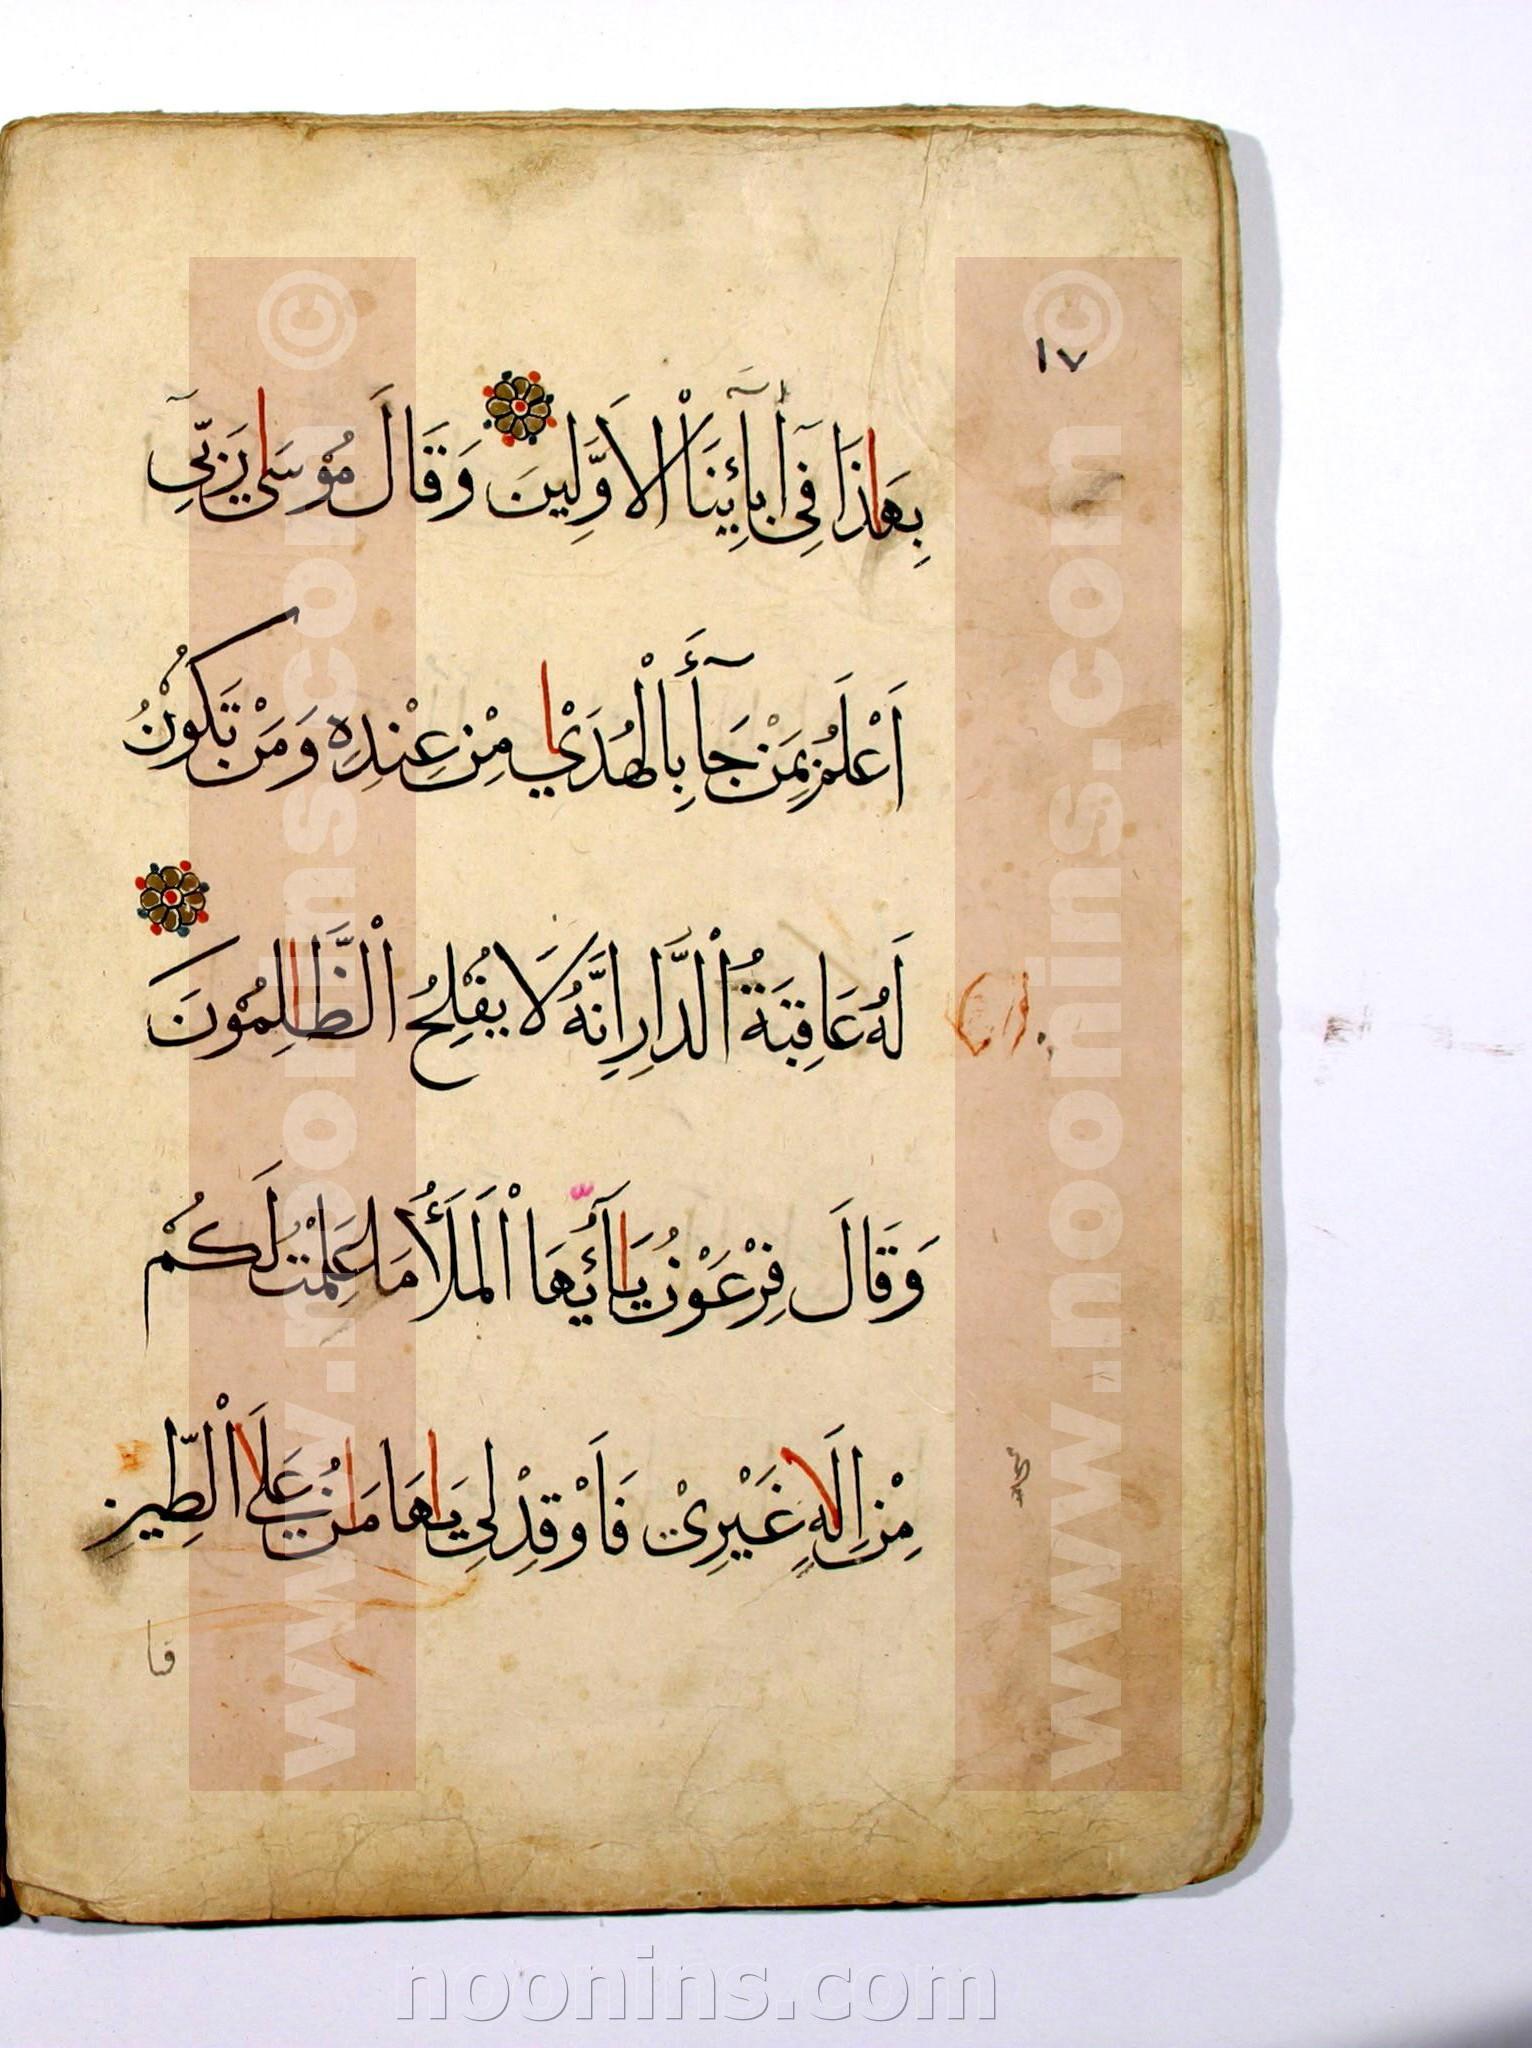 ١٧
بِهَاذَا فِىٓ اٰبَآئِنَا الْاَوَّلِينَ وَقَالَ مُوْسَىٰ رَبِّىٓ
اَعْلَمُ بِمَنْ جَآءَ بِالْهُدٰى مِنْ عِنْدِهٖ وَمَنْ تَكُوْنُ
لَهُ عَاقِبَةُ الدَّارِ اِنَّهُ لَا يُفْلِحُ الْظَّالِمُوْنَ
وَقَالَ فِرْعَوْنُ يَآ أَيُّهَا الْمَلَأُ مَا عَلِمْتُ لَكُمْ
مِنْ اِلٰهٍ غَيْرِىْ فَاَوْقِدْ لِى يَاهَامَانُ عَلَى الْطِّيْنِ
www.noonins.com ©
www.noonins.com ©
noonins.com